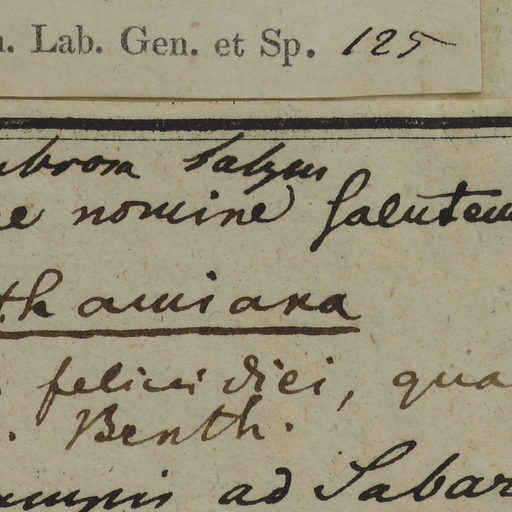 . Lab. Gen. et Sp. 125
nomine Salutem
thamiana
felicis diei, qua
. Benth.
ad Sabar